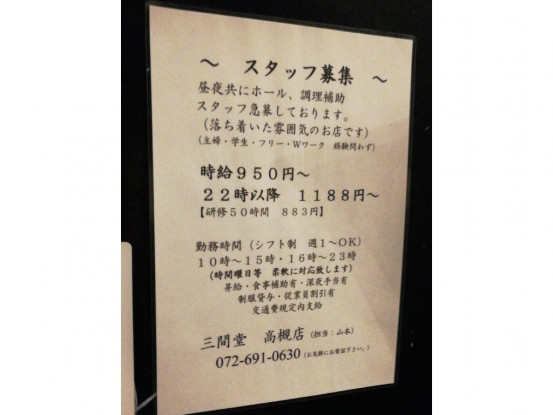 ～ スタッフ募集 ～
昼夜共にホール、調理補助
スタッフ急募しております。
（落ち着いた雰囲気のお店です）
（主婦・学生・フリー・Wワーク 経験問わず）
時給９５０円～
２２時以降 １１８８円～
【研修５０時間 ８８３円】
勤務時間（シフト制 週１～OK）
１０時～１５時・１６時～２３時
（時間曜日等 柔軟に対応致します）
昇給・食事補助有・深夜手当有
制服貸与・従業員割引有
交通費規定内支給
三間堂 高槻店（担当：山本）
072-691-0630（お気軽にお電話下さい。）